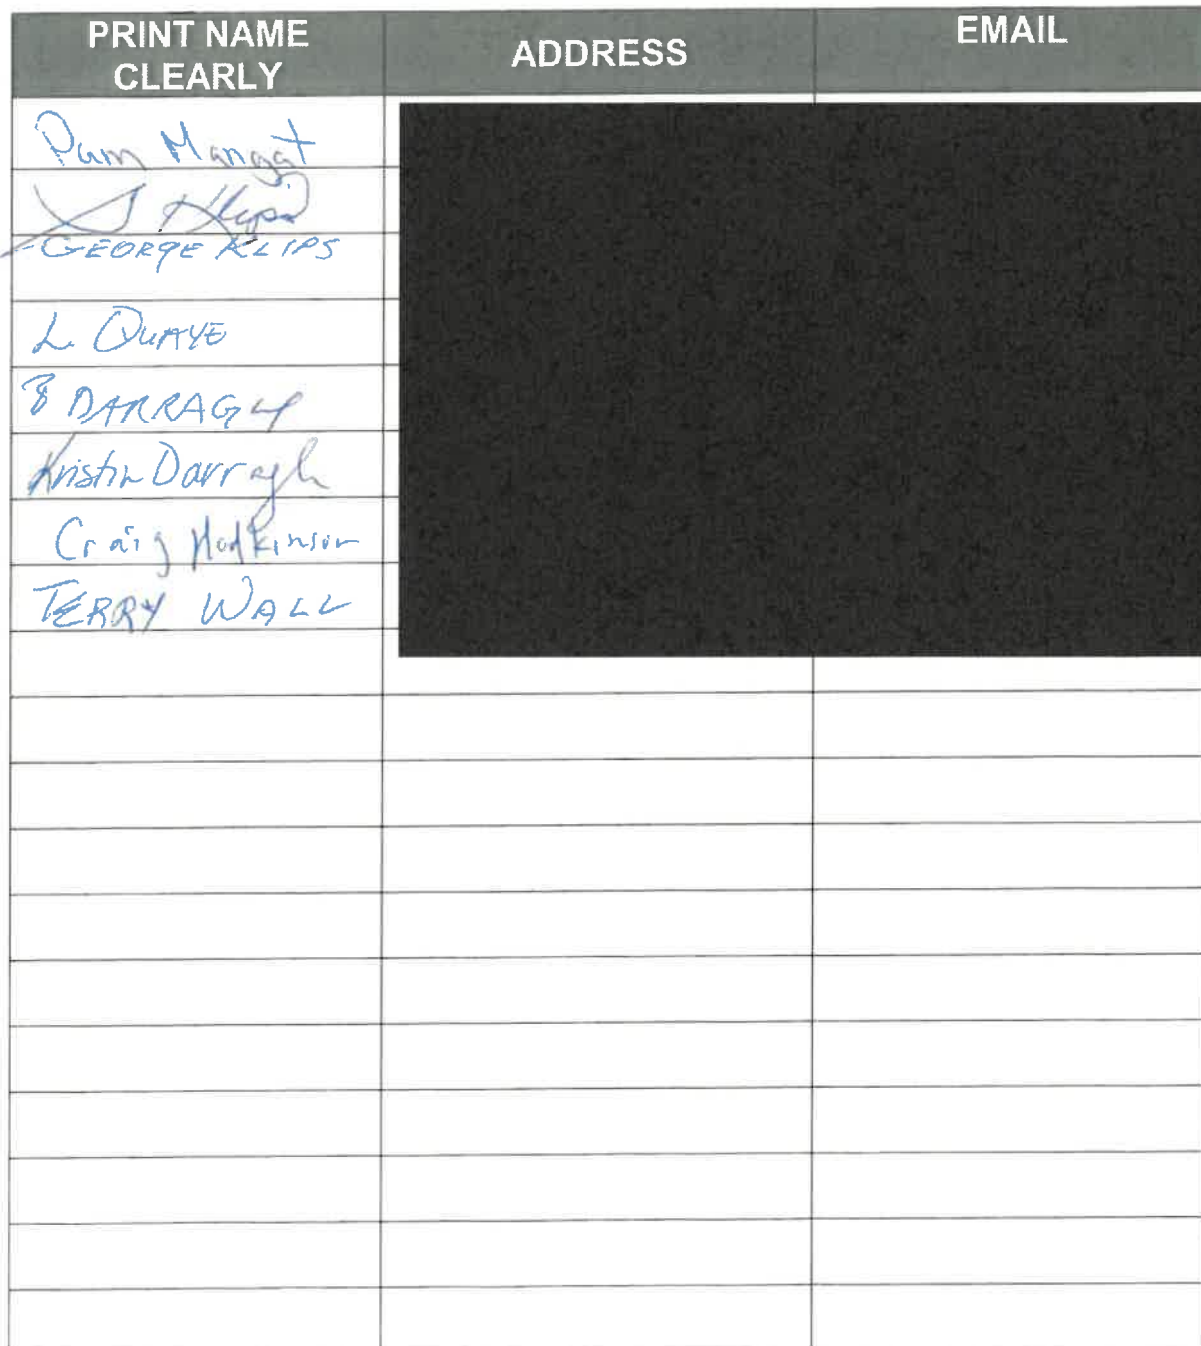 PRINT NAME
CLEARLY
ADDRESS
EMAIL
Pam Mangat
GEORGE KLIPS
L. QUAYE
B DARRAGH
Kristin Darragh
Craig Hodkinson
TERRY WALL